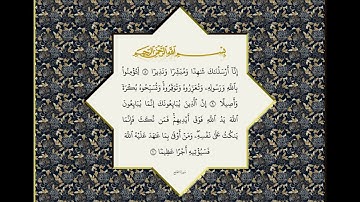 بسم الله الرحمن الرحيم
إِنَّآ أَرْسَلْنَٰكَ شَٰهِدًا وَمُبَشِّرًا وَنَذِيرًا ۝٨ لِّتُؤْمِنُوا۟
بِٱللَّهِ وَرَسُولِهِۦ وَتُعَزِّرُوهُ وَتُوَقِّرُوهُ وَتُسَبِّحُوهُ بُكْرَةً
وَأَصِيلًا ۝٩ إِنَّ ٱلَّذِينَ يُبَايِعُونَكَ إِنَّمَا يُبَايِعُونَ
ٱللَّهَ يَدُ ٱللَّهِ فَوْقَ أَيْدِيهِمْ فَمَن نَّكَثَ فَإِنَّمَا
يَنكُثُ عَلَىٰ نَفْسِهِۦ وَمَنْ أَوْفَىٰ بِمَا عَٰهَدَ عَلَيْهُ ٱللَّهَ
فَسَيُؤْتِيهِ أَجْرًا عَظِيمًا ۝١٠